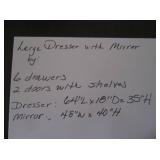 Large Dresser with Mirror
by:
6 drawers
2 doors with shelves
Dresser: 64"L x 18"D x 35"H
mirror, 48"W x 40"H